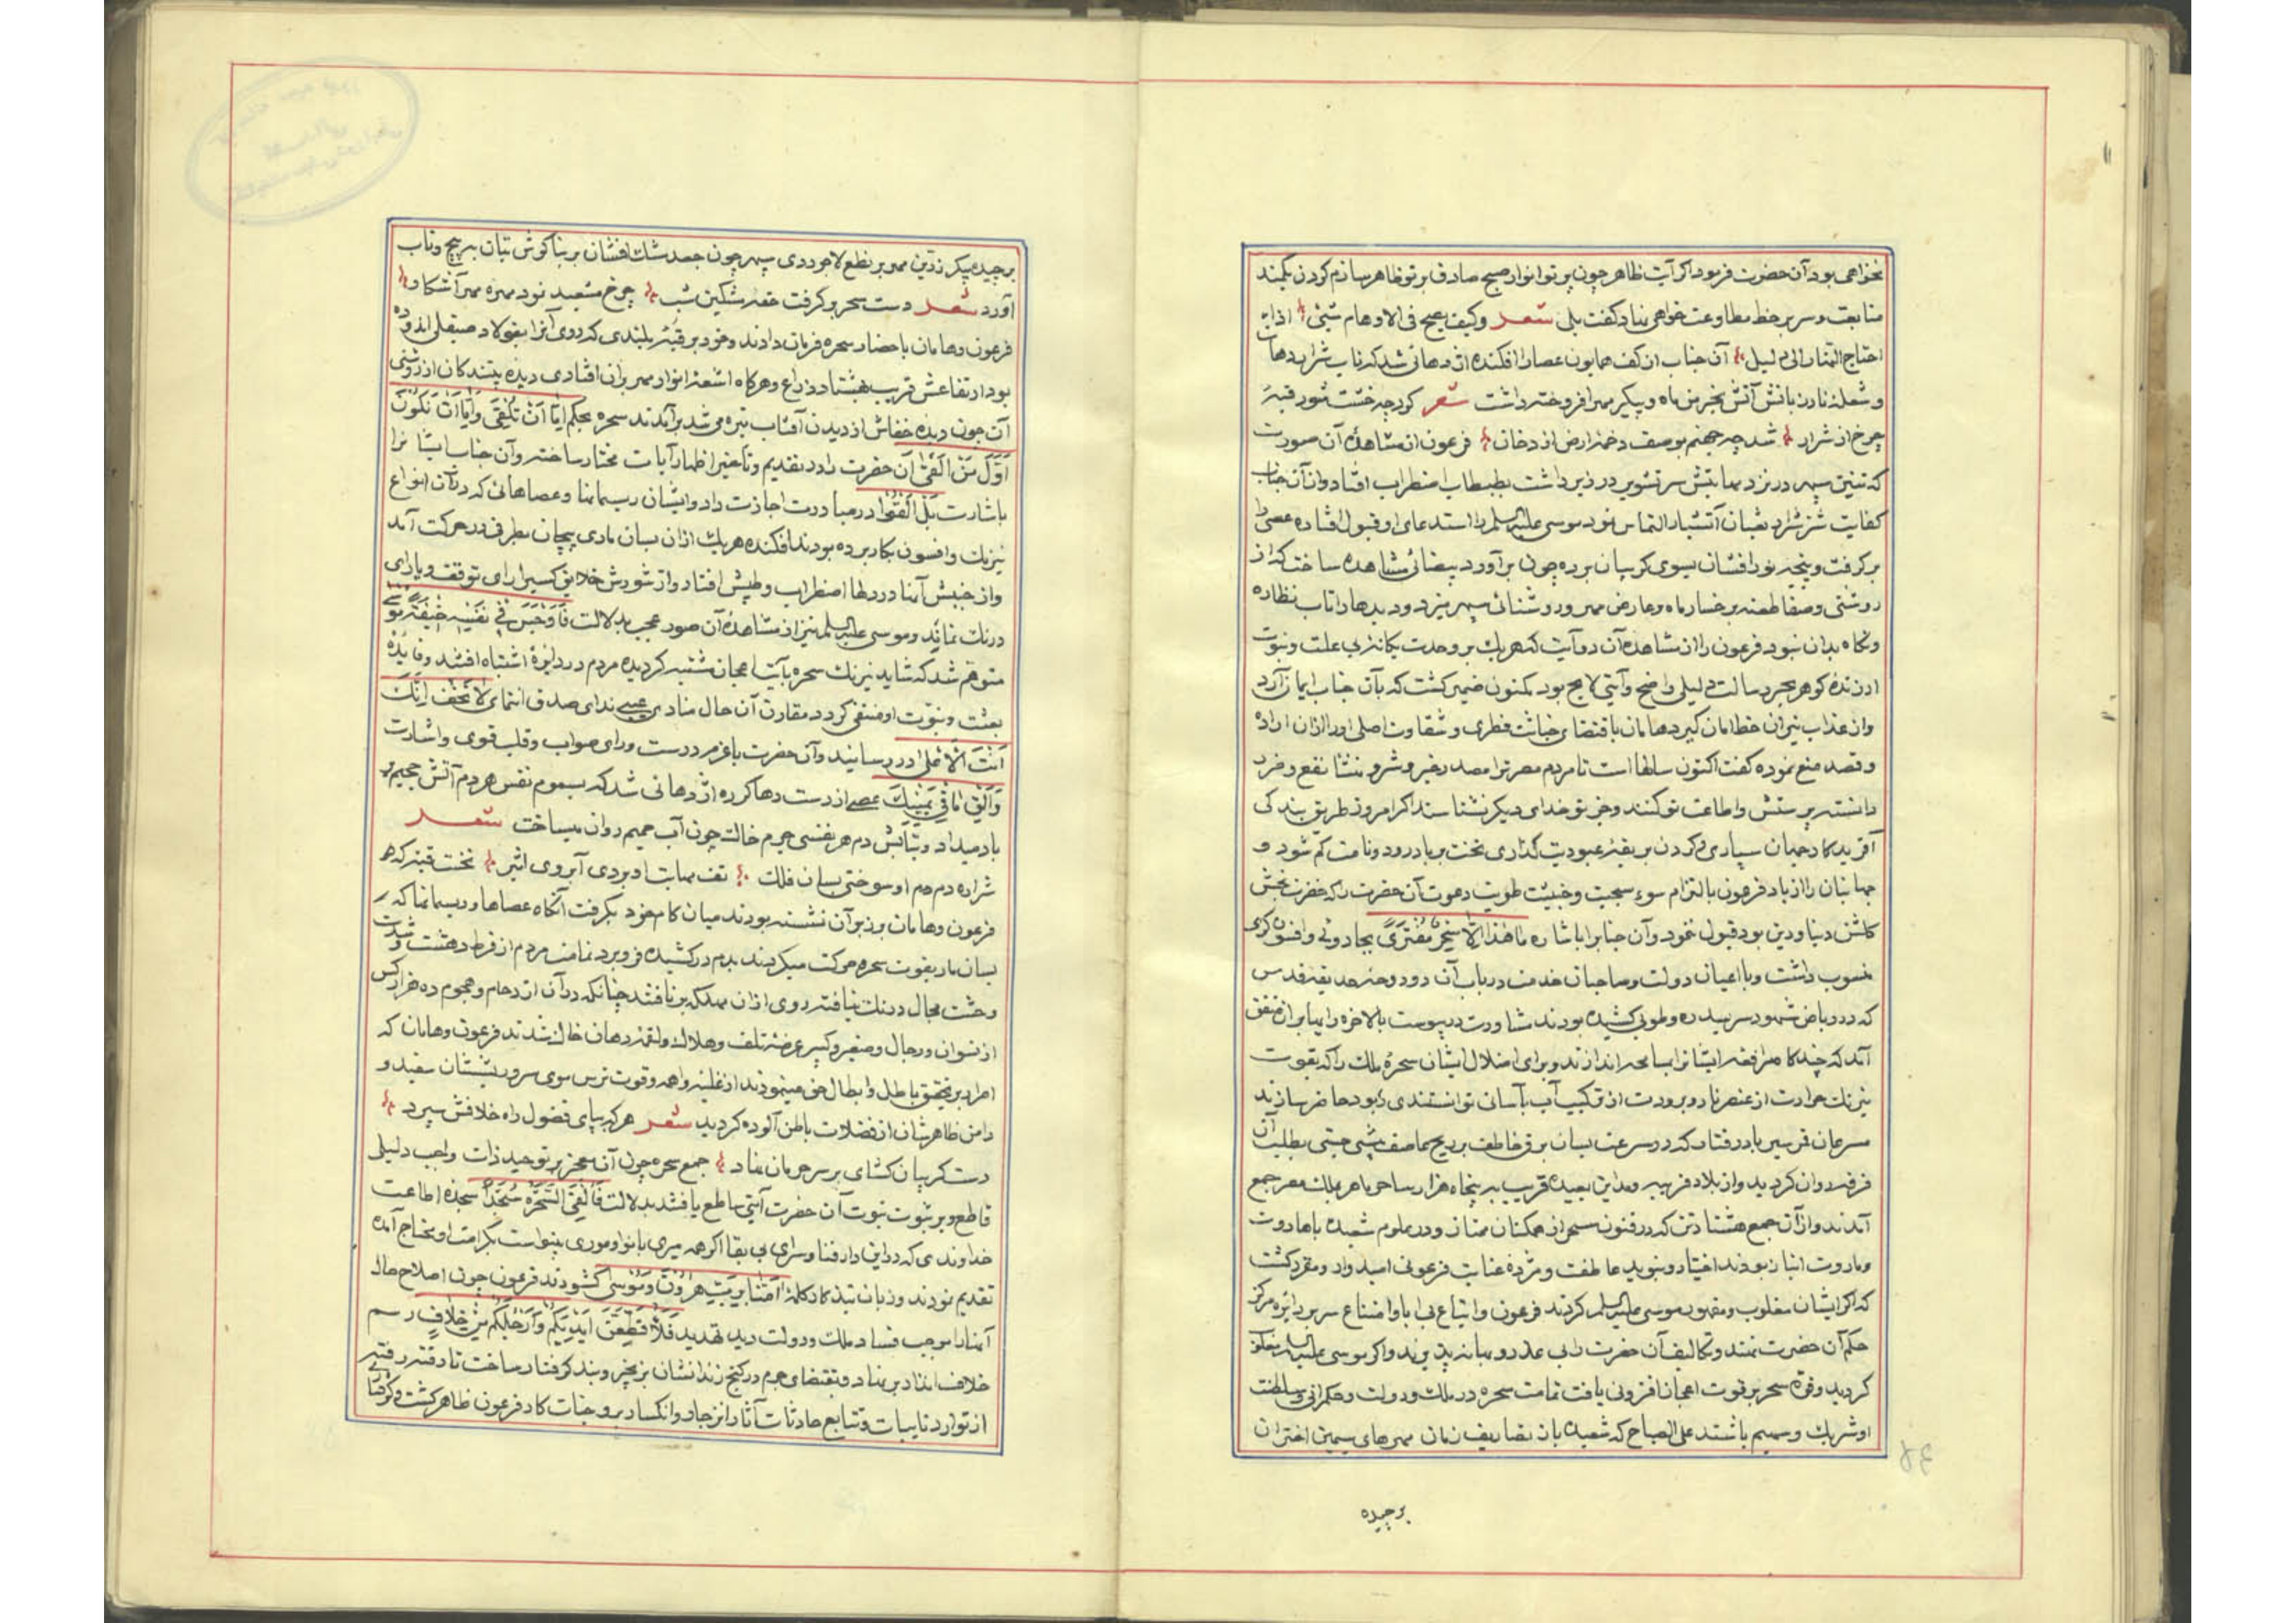 نخواهی بود آن حضرت فرمود اکر آیت ظاهر چون پرتو انوار صبح صادق بر تو ظاهر سازم کردن بکمند
متابعت و سر بر خط مطاوعت خواهی نهاد کفت بلی شعر وکیف یصح فی الاوهام شیئی اذا
احتاج النهار الی دلیل آن جناب از کف همایون عصا را افکنده اژدهائی شد که تاب شرار دهان
و شعله نار زبانش آتش بخرمن ماه و پیکر مهر افروخته داشت شعر کوره خشت شود قبهٔ
چرخ از شرار شد چه جهنم بوصف دخمهٔ ارض از دخان فرعون از مشاهدهٔ آن صورت
که تنین سپهر در نزد مهابتش سر تشویر در زیر داشت اضطراب افتاد و از آن جناب
کفایت شر شراره ثعبان آتشبار التماس نمود موسی علیه السلم را استدعای او قبول افتاده عصی را
بر کرفت و پنجه نور افشان بسوی کریبان برده چون بر آورد بیضائی مشاهده ساخت که از
روشنی و صفا طعنه بر رخسار ماه و عارض مهر و روشنائی سپهر میزد و دیدها را تاب نظاره
و نکاه بدان نبود فرعون را از مشاهده آن دو آیت که هر یک بر وحدت یکانه بی علت و نبوت
ارزنده کوهر بحر رسالت دلیلی واضح و آیتی لایح بود مکنون ضمیر کشت که بآن جناب ایمان آرد
و از عذاب نیران خط امان کیرد هامان باقتضای خباثت فطری و شقاوت اصلی او را از آن اراده
و قصد منع نموده کفت اکنون سالها است تا مردم مصر ترا مصدر خیر و شر و منشا نفع و ضرر
دانسته پرستش و اطاعت تو کنند و جز تو خدای دیکر نشناسند اکر امروز طریق بندکی
آفریدکار جهان سپاری و کردن بربقهٔ عبودیت کذاری تخت بر باد رود و نامت کم شود و
جهانبان را از یاد فرعون بالتزام سوء سجیت و خبیث طویت دعوت آن حضرت را که خضرت بخش
کلشن دنیا و دین بود قبول ننمود و آن جناب را باشاره ما هذا الا سحر مفتری بجادوئی و افسون کری
منسوب داشت و با اعیان دولت و صاحبان خدمت در باب آن دو دوحه حدیقه قدس
که در ریاض شهود سر بسدره و طوبی کشیده بودند مشاورت در پیوست بالاخره رایها بر آن متفق
آمد که چند کاه مرافقه ایشانرا بسامحه اندازند و برای اضلال ایشان سحرهٔ ملک را که بقوت
نیرنک حرارت از عنصر نار و برودت از ترکیب آب بآسان توانستندی ربود حاضر سازند
مسرعان قمر سیر باد رفتار که در سرعت بسان برق خاطف بر ریح عاصف پیشی جستی بطلب آن
فرقه روان کردید و از بلاد قریبه و مداین بعیده قریب به پنجاه هزار ساحر ماهر بملک مصر جمع
آمدند و از آن جمع هشتاد تن که در فنون سحر از همکنان ممتاز و در علوم شعبده با هاروت
و ماروت انباز بودند اختیار و بنوید عاطفت و مژدهٔ عنایت فرعونی امیدوار و مقرر کشت
که اکر ایشان مغلوب و مقهور موسی علیه السلم کردند فرعون و اتباع بی ابا و امتناع سر بر دایره مرکز
حکم آن حضرت نهند و تکالیف آن حضرت را بی عذر و بهانه پذیرند و اکر موسی علیه السلم مغلوب
کردید و قوه سحر بر قوت اعجاز افزونی یافت تمامت سحره در ملک و دولت و حکمرانی و سلطنت
او شریک و سهیم باشند علی الصباح که شعبده باز تصاریف زمان مهرهای سیمین اختران
برچیده
برچیده پیکر زرین مهر بر نطع لاجوردی سپهر چون جعد مشک افشان بر بناکوش بتان به پیچ و تاب
آورد شعر دست سحر بر کرفت حقهٔ مشکین شب چرخ مشعبد نمود مهره مهر آشکار
فرعون و هامان باحضار سحره فرمان دادند و خود بر قبهٔ بلندی که روی آنرا بفولاد صیقلی اندوده
بود ارتفاعش قریب بهشتاد ذراع و هرکاه اشعهٔ انوار مهر بر آن افتادی دیده بینندکان از روشنی
آن چون دیده خفاش از دیدن آفتاب تیره میشد بر آمدند سحره بحکم اما ان تلقی و اما ان نکون
اول من القی آن حضرت را در تقدیم و تاخیر اظهار آیات مختار ساخته و آن جناب ایشانرا
باشارت بل القوا در مبادرت اجازت داد و ایشان ریسمانها و عصاهائی که در آن انواع
نیرنک و افسون بکار برده بودند افکنده هر یک از آن بسان ماری پیچان بطرفی در حرکت آمد
و از جنبش آنها در دلها اضطراب و طپش افتاد و از شورش خلایق کسیرا رای توقف و یارای
درنک نماند و موسی علیه السلم نیز از مشاهدهٔ آن صور عجب بدلالت فاوجس فی نفسه خیفة موسی
متوهم شد که شاید نیرنک سحره بآیت اعجاز مشتبه کردیده مردم در دایرهٔ اشتباه افتند و فایده
بعثت و نبوت او منتفی کردد مقارن آن حال منادی غیبی ندای صدق انتمای لا تخف انک
انت الاعلی در رسانید و آن حضرت با عزم درست و رای صواب و قلب قوی و اشارت
و الق ما فی یمینک عصی از دست رها کرده اژدهائی شد که بسموم نفس هر دم آتش جحیم بر
باد میداد و بتابش دم هر نفسی جرم خاک چون آب حمیم روان میساخت شعر
شراره دم هم او سوختی بسان فلک تف مهابت او بردی آبروی اثیر نخست قبه که
فرعون و هامان بر زبر آن نشسته بودند میان کام خود بکرفت آنکاه عصاها و ریسمانها که
بسان مار بقوت سحره حرکت میکردند بدم در کشیده فرو برد تمامت مردم از فرط دهشت و شدت
وحشت مجال درنک نیافته روی از آن مهلکه بر تافتند چنانکه در آن ازدحام و هجوم ده هزار کس
از نسوان و رجال و صغیر و کبیر عرضهٔ تلف و هلاک و لقمهٔ دهان خاک شدند فرعون و هامان که
امر بر تحقیق باطل و ابطال حق مینمودند از غلبه واهمه و قوت ترس موی سر و ریششان سفید و
دامن ظاهرشان از فضلات باطن آلوده کردید شعر هر که بپای فضول راه خلافش سپرد
دست کریبان کشای بر سر حرمان نهاد جمع سحره چون آن معجز بر توحید ذات واجب دلیلی
قاطع و بر ثبوت نبوت آن حضرت آیتی ساطع یافتند بدلالت فالقی السحرة سجدا سجدهٔ اطاعت
خداوندی که در این دار فنا و سرای بی بقا اکر همه میری بانوا و موری بینواست بکرامت او محتاج آمده
تقدیم نمودند و زبان بتذکار کلمهٔ آمنا برب هرون و موسی کشودند فرعون چون اصلاح حال
آنها را موجب فساد ملک و دولت دید تهدید فلاقطعن ایدیکم و ارجلکم من خلاف رسم
خلاف انداد بر نهاد و بمقتضای جرم در کنج زندانشان بزنجیر و بند کرفتار ساخت تا رفته رفته
از توارد نایبات و تتابع حادثات آثار انزجار و انکسار بر وجنات کار فرعون ظاهر کشت و